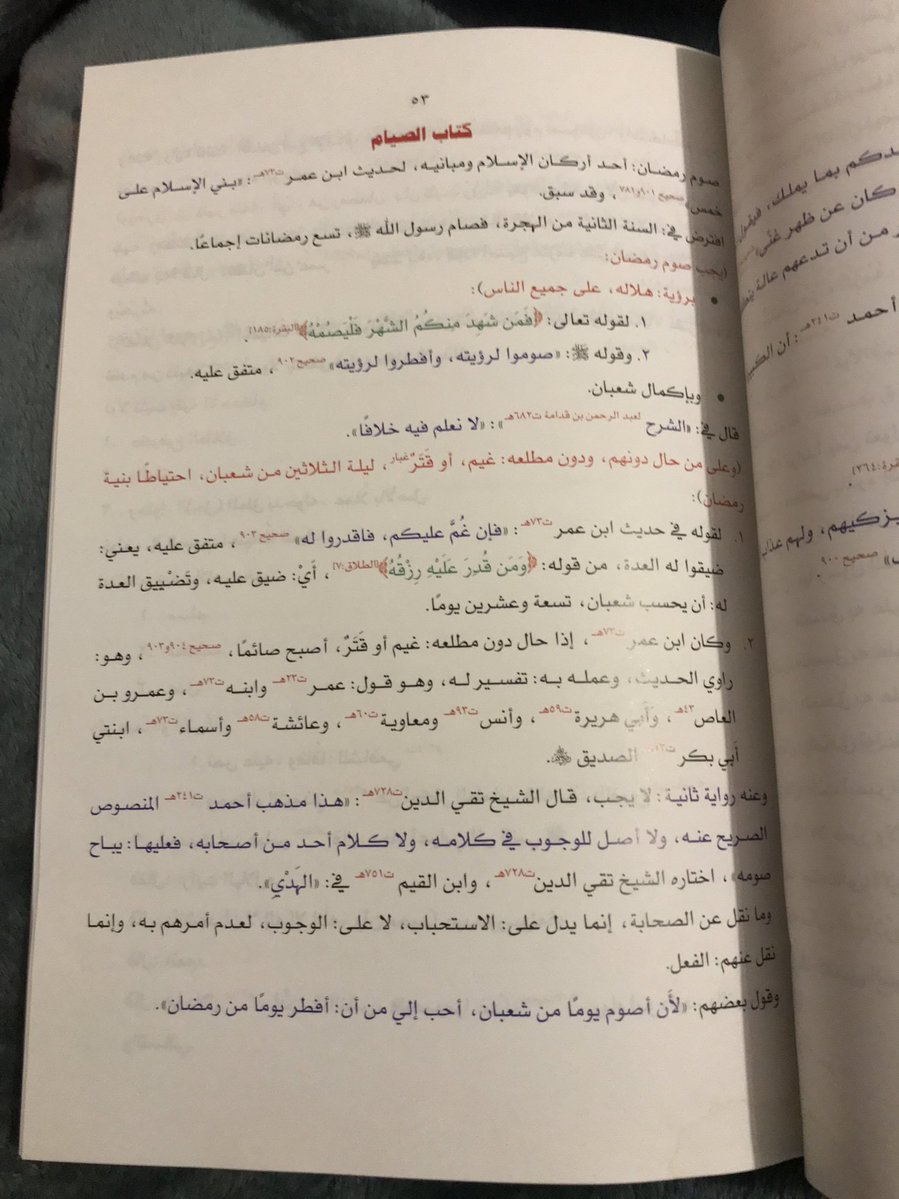 ٥٣
كتاب الصيام
صوم رمضان: أحد أركان الإسلام ومبانيه، لحديث ابن عمر ت٧٣هـ: «بني الإسلام على
خمس» صحيح ٩٠١و٧٨١، وقد سبق.
افترض في: السنة الثانية من الهجرة، فصام رسول الله ﷺ، تسع رمضانات إجماعًا.
(يجب صوم رمضان:
• برؤية: هلاله، على جميع الناس):
١. لقوله تعالى: ﴿فَمَن شَهِدَ مِنكُمُ الشَّهْرَ فَلْيَصُمْهُ﴾ [البقرة:١٨٥].
٢. وقوله ﷺ: «صوموا لرؤيته، وأفطروا لرؤيته» صحيح ٩٠٢، متفق عليه.
• وبإكمال شعبان.
قال في: «الشرح لعبد الرحمن بن قدامة ت٦٨٢هـ»: «لا نعلم فيه خلافًا».
(وعلى من حال دونهم، ودون مطلعه: غيم، أو قَتَرٌ غبار، ليلة الثلاثين من شعبان، احتياطًا بنية
رمضان):
١. لقوله في حديث ابن عمر ت٧٣هـ: «فإن غُمَّ عليكم، فاقدروا له» صحيح ٩٠٣، متفق عليه، يعني:
ضيقوا له العدة، من قوله: ﴿وَمَن قُدِرَ عَلَيْهِ رِزْقُهُ﴾ [الطلاق:٧]، أَيْ: ضيق عليه، وتَضْييق العدة
له: أن يحسب شعبان، تسعة وعشرين يومًا.
٢. وكان ابن عمر ت٧٣هـ، إذا حال دون مطلعه: غيم أو قَتَرٌ، أصبح صائمًا، صحيح ٩٠٤و٩٠٣، وهو:
راوي الحديث، وعمله به: تفسير له، وهو قول: عمر ت٢٣هـ وابنه ت٧٣هـ، وعمرو بن
العاص ت٤٣هـ، وأبي هريرة ت٥٩هـ، وأنس ت٩٣هـ ومعاوية ت٦٠هـ، وعائشة ت٥٨هـ وأسماء ت٧٣هـ، ابنتي
أبي بكر الصديق ﵃.
وعنه رواية ثانية: لا يجب، قال الشيخ تقي الدين ت٧٢٨هـ: «هذا مذهب أحمد ت٢٤١هـ المنصوص
الصريح عنه، ولا أصل للوجوب في كلامه، ولا كلام أحد من أصحابه، فعليها: يباح
صومه»، اختاره الشيخ تقي الدين ت٧٢٨هـ، وابن القيم ت٧٥١هـ في: «الهَدْيِ».
وما نقل عن الصحابة، إنما يدل على: الاستحباب، لا على: الوجوب، لعدم أمرهم به، وإنما
نقل عنهم: الفعل.
وقول بعضهم: «لأَن أصوم يومًا من شعبان، أحب إلي من أن: أفطر يومًا من رمضان».
بما يملك،
كان عن ظهر غنًى
من أن تدعهم عالة
أحمد ت٢٤١هـ: أن
يزكيهم، ولهم عذاب
صحيح ٩٠٠.